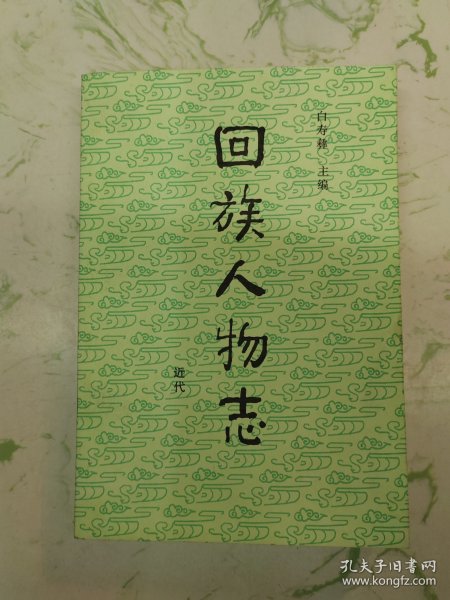 白寿彝 主编
回族人物志
近代
孔夫子旧书网
www.kongfz.com